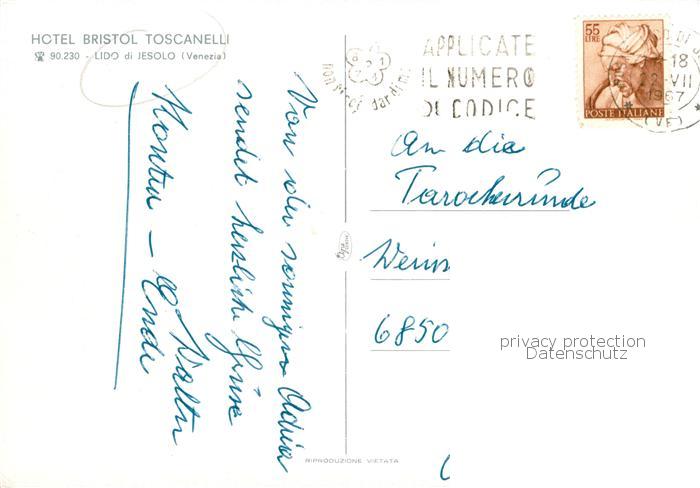 HOTEL BRISTOL TOSCANELLI
☎ 90.230 - LIDO di JESOLO (Venezia)
APPLICATE
IL NUMERO
DI CODICE
55
LIRE
POSTE ITALIANE
18
VII
1967
(VE)
Von der sonnigen Adria
sendet herzliche Grüsse
Walter
An die
Tarockerrunde
6850
privacy protection
Datenschutz
RIPRODUZIONE VIETATA